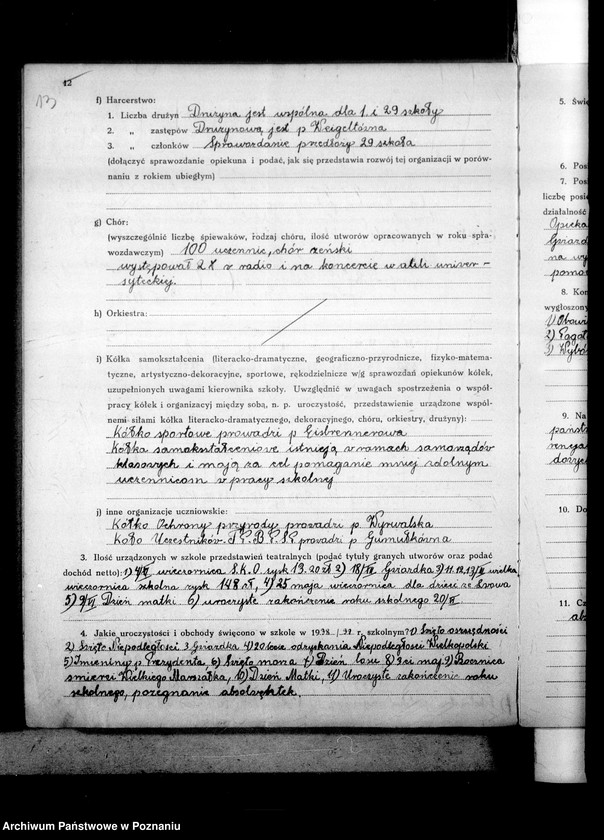 12
13
f) Harcerstwo:
1. Liczba drużyn Drużyna jest wspólna dla 1. i 29 szkoły
2. „ zastępów Drużynową jest p Weigeltówna
3. „ członków Sprawozdanie przedłoży 29 szkoła
(dołączyć sprawozdanie opiekuna i podać, jak się przedstawia rozwój tej organizacji w porów-
naniu z rokiem ubiegłym)
g) Chór:
(wyszczególnić liczbę śpiewaków, rodzaj chóru, ilość utworów opracowanych w roku spra-
wozdawczym) 100 uczennic, chór żeński
występował 2 X w radio i na koncercie w auli uniwer-
syteckiej.
h) Orkiestra:
i) Kółka samokształcenia (literacko-dramatyczne, geograficzno-przyrodnicze, fizyko-matema-
tyczne, artystyczno-dekoracyjne, sportowe, rękodzielnicze w/g sprawozdań opiekunów kółek,
uzupełnionych uwagami kierownika szkoły. Uwzględnić w uwagach spostrzeżenia o współ-
pracy kółek i organizacyj między sobą, n. p. uroczystość, przedstawienie urządzone wspól-
nemi siłami kółka literacko-dramatycznego, dekoracyjnego, chóru, orkiestry, drużyny):
Kółko sportowe prowadzi p Eisbrennerowa
Kółka samokształceniowe istnieją w ramach samorządów
klasowych i mają za cel pomaganie mniej zdolnym
uczennicom w pracy szkolnej
j) inne organizacje uczniowskie:
Kółko Ochrony przyrody prowadzi p. Wyrwalska
Koło Uczestników T.P.B.P.S.P. prowadzi p Gumułkówna
3. Ilość urządzonych w szkole przedstawień teatralnych (podać tytuły granych utworów oraz podać
dochód netto): wieczornica S.K.O. zysk 13.20 zł Gwiazdka wielka
wieczornica szkolna zysk 148 zł, 4) 25 maja wieczornica dla dzieci ze Lwowa
Dzień matki 6) uroczyste zakończenie roku szkolnego
4. Jakie uroczystości i obchody święcono w szkole w 1938/39 r. szkolnym? 1) Święto oszczędności
2) Święto Niepodległości 3 Gwiazdka 4) 20 lecie odzyskania Niepodległości Wielkopolski
5) Imieniny p Prezydenta, 6) Święto morza 7) Dzień lasu 8) 3-ci maj 9) Rocznica
śmierci Wielkiego Marszałka, 10) Dzień Matki, 11) Uroczyste zakończenie roku
szkolnego, pożegnanie absolwentek.
5. Świę
6. Pos
7. Pos
liczbę posie
działalność
Opieka
Gwiazd
na wy
pomo
8. Kon
wygłoszony
1) Obowi
2) Pogad
3) Wybó
9. Na
państ
10. Do
11. Cz
Archiwum Państwowe w Poznaniu